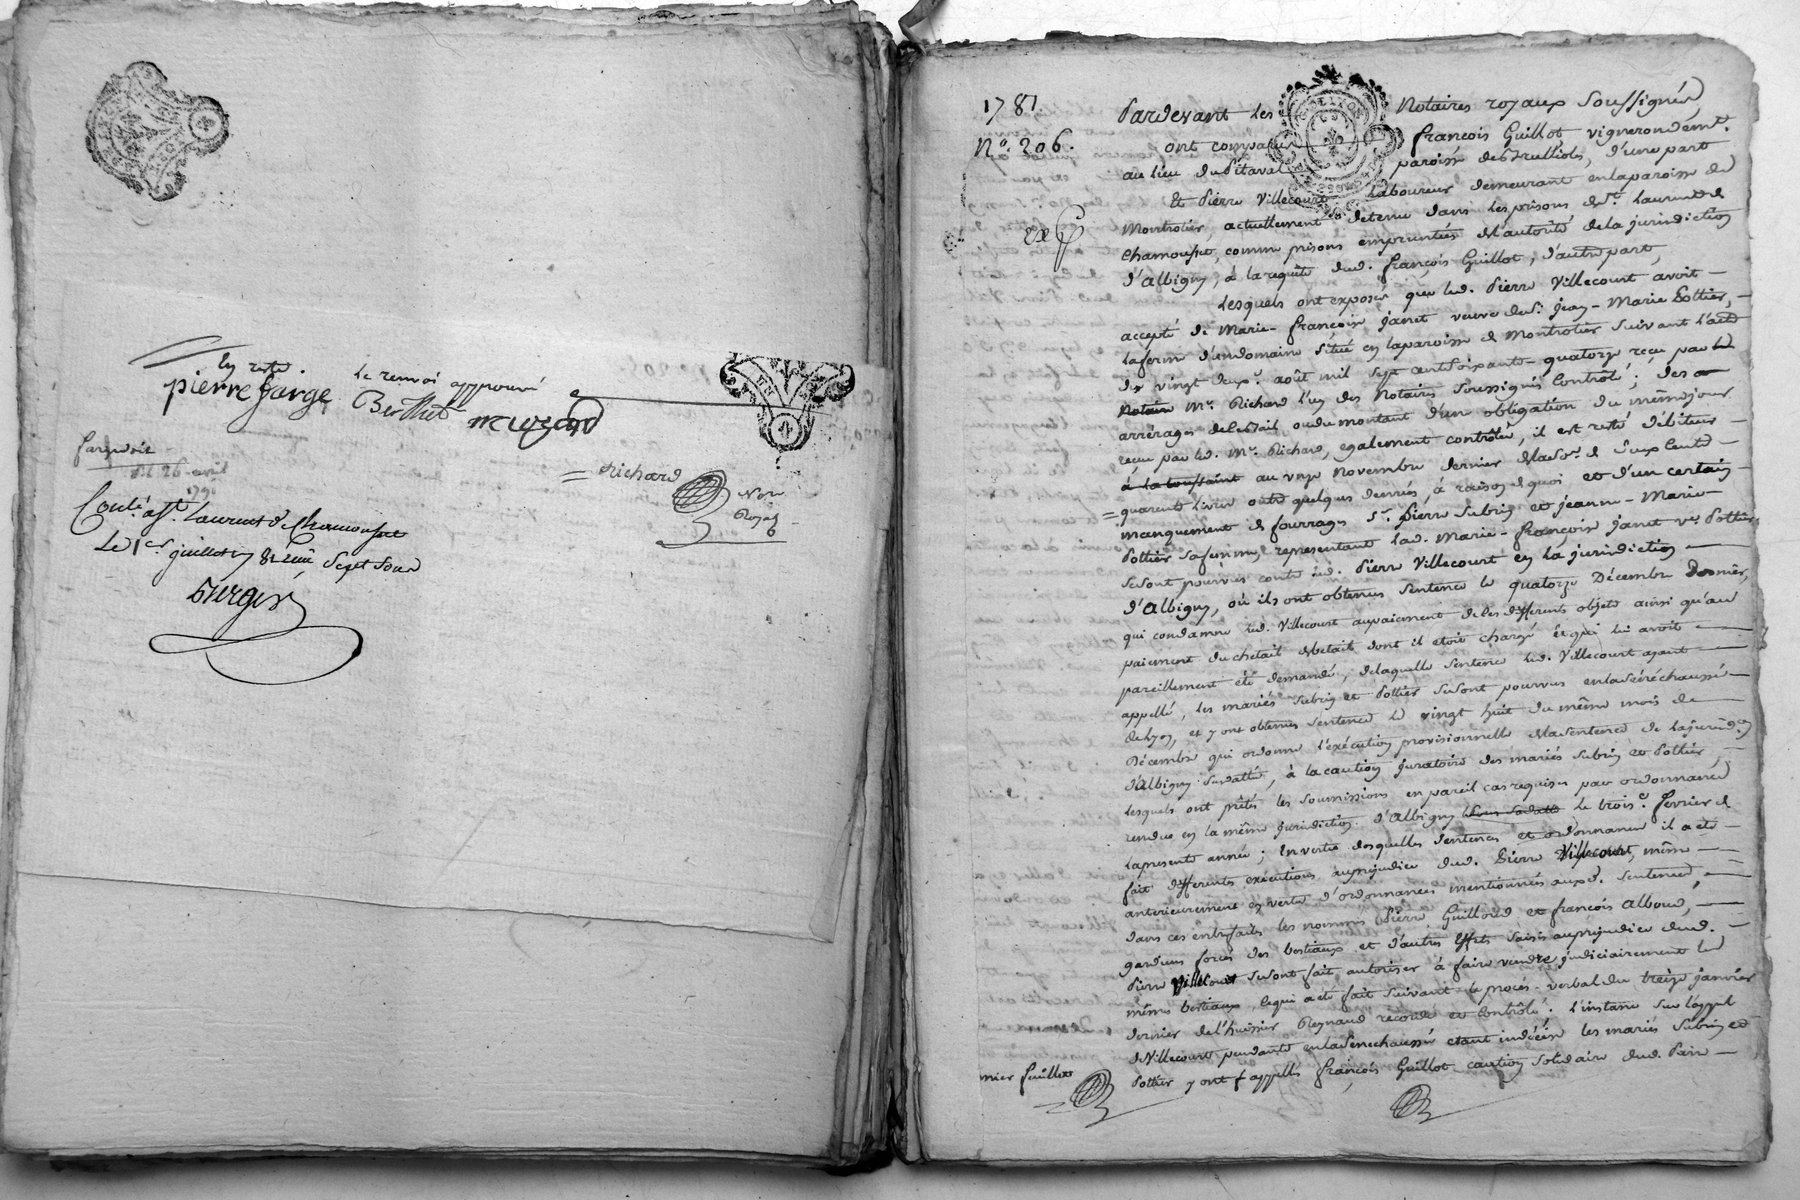 en reste
pierre farge le renvoi approuvé
Berthet
Richard Not.
Royal
26 avril
Contlé a St. Laurent de Chamousset
Le 1er juillet 1781 Sept Sous
1781.
N°. 206.
Pardevant les Notaires royaux Soussignés,
ont comparus françois Guillot vigneron demt.
au lieu du Pitaval paroisse des Brullioles, d'une part
Et Pierre Villecourt Laboureur demeurant en la paroisse de
Montrotier, actuellement detenu dans les prisons de St. Laurent de
Chamousset, comme prisons empruntées de l'autorité de la jurisdiction
d'Albigny, à la requête dud. françois Guillot, d'autre part,
Lesquels ont exposés que led. Pierre Villecourt avoit
accepté de Marie-françoise janet veuve de Sr. jean-Marie Pottier,
la ferme d'un domaine Situé en la paroisse de Montrotier suivant l'acte
du vingt deuxe. août mil Sept cent Soixante-quatorze reçu par
Me. Richard l'un des Notaires Soussignés Controlé; des
arrérages de ce bail ou du montant d'un obligation du même jour
reçue par led. Me. Richard, egalement contrôlée, il est resté débiteur
à la toussaint au onze Novembre dernier de la So. de deux Cents
quarente Livres outre quelques denrées, à raison de quoi et d'un certain
manquement de fourrages Sr. Pierre Subrin et jeanne-Marie
Pottier sa femme, representant lad. Marie-françoise janet ve. Pottier
se sont pourvus contre led. Pierre Villecourt en la jurisdiction
d'Albigny, où ils ont obtenus Sentence le quatorze Décembre Dernier,
qui condamne led. Villecourt au paiement de ces differents objets ainsi qu'au
paiement du chetail de betail dont il etoit chargé et qui lui avoit
pareillement été demandé, de laquelle Sentence led. Villecourt ayant
appellé, les mariés Subrin et Pottier se sont pourvus en la sénéchaussée
de Lyon, et y ont obtenus Sentence le vingt huit du même mois de
Décembre qui ordonne l'exécution provisionnelle de la Sentence de la jurisdon.
d'Albigny Susdatte, à la caution juratoire des mariés Subrin et Pottier,
Lesquels ont prêtés les soumissions en pareil cas requises par ordonnance
rendue en la même jurisdiction d'Albigny le troise. février de
la presente année; En vertu desquelles Sentences et ordonnance il a eté
fait differentes exécutions au préjudice dud. Pierre Villecourt, même
anterieurement en vertu d'ordonnances mentionnées auxd. Sentences,
dans ces entrefaits les nommés Pierre Guilloud et françois Alboud,
gardiens forcés des bestiaux et d'autres effets saisis au préjudice dud.
Pierre Villecourt se sont fait autoriser à faire vendre judiciairement les
mêmes bestiaux, ce qui a eté fait suivant le procès-verbal du treize janvier
dernier de l'huissier Reynaud recordé et controlé. L'instance sur l'appel
de Villecourt pendante en la Senechaussée etant indécise les mariés Subrin et
Pottier y ont appellés françois Guillot caution Solidaire dud. Pierre
mier feuillet